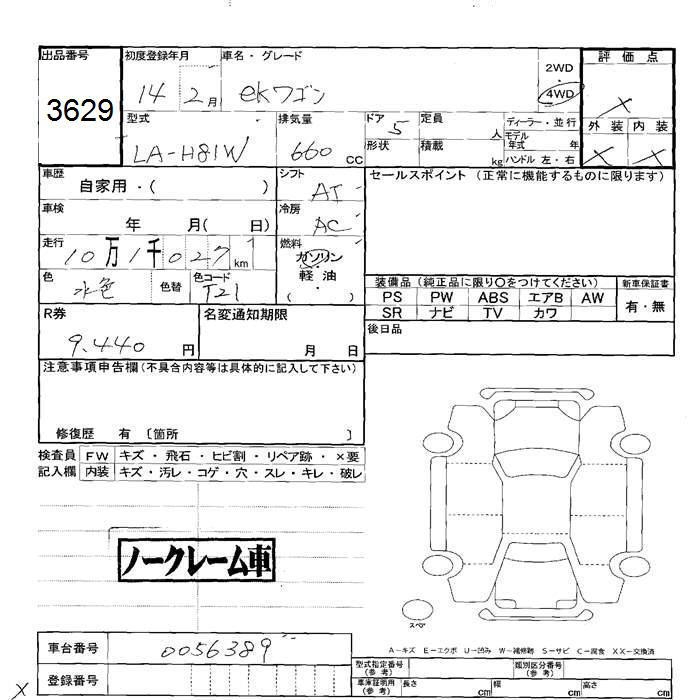 出品番号 初度登録年月 車名・グレード 評価点
3629 14 2月 ekワゴン 2WD 4WD ×
型式 排気量 ドア 5 定員 人 ディーラー・並行 外装 内装
LA-H81W 660 cc 形状 積載 kg モデル年式 年 ハンドル 左・右 × ×
車歴 自家用・( ) シフト AT セールスポイント (正常に機能するものに限ります)
車検 年 月( 日) 冷房 AC
走行 10万1千027km 燃料 ガソリン
色 水色 色替 色コード T21 軽油
( )
装備品 (純正品に限り○をつけてください) 新車保証書
PS PW ABS エアB AW 有・無
SR ナビ TV カワ
R券 9,440 円 名変通知期限 月 日 後日品
注意事項申告欄(不具合内容等は具体的に記入して下さい)
修復歴 有 〔箇所 〕
検査員 FW キズ・飛石・ヒビ割・リペア跡・×要
記入欄 内装 キズ・汚レ・コゲ・穴・スレ・キレ・破レ
ノークレーム車
スペア
A-キズ E-エクボ U-凹み W-補修跡 S-サビ C-腐食 XX-交換済
車台番号 0056389
登録番号
型式指定番号(参考) 類別区分番号(参考)
車庫証明用(参考) 長さ cm 幅 cm 高さ cm
×